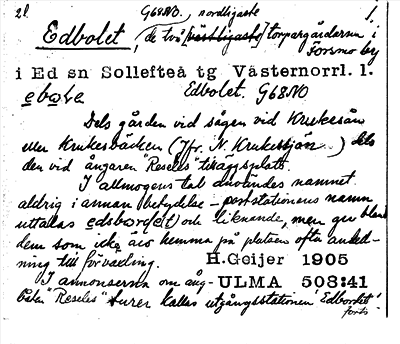 2l. G68NO. nordligaste 1.
Edbolet, (de två [västligaste] torpargårdarna i
Forsmo by
i Ed sn Sollefteå tg Västernorrl. l.
Edbolet. G68NO
Dels gården vid sågen vid Krukesån
eller Krukesbäcken (Jfr. N. Kruketjärn) dels
den vid ångaren "Reseles" tilläggsplats.
I allmogens tal användes namnet
aldrig i annan betydelse – poststationens namn
uttalas edsbor(et) och liknande, men ger bland
dem som icke äro hemma på platsen ofta anled-
ning till förväxling. H.Geijer 1905
I annonserna om ång- ULMA 508:41
båten "Reseles" turer kallas utgångsstationen "Edborlet"
forts.